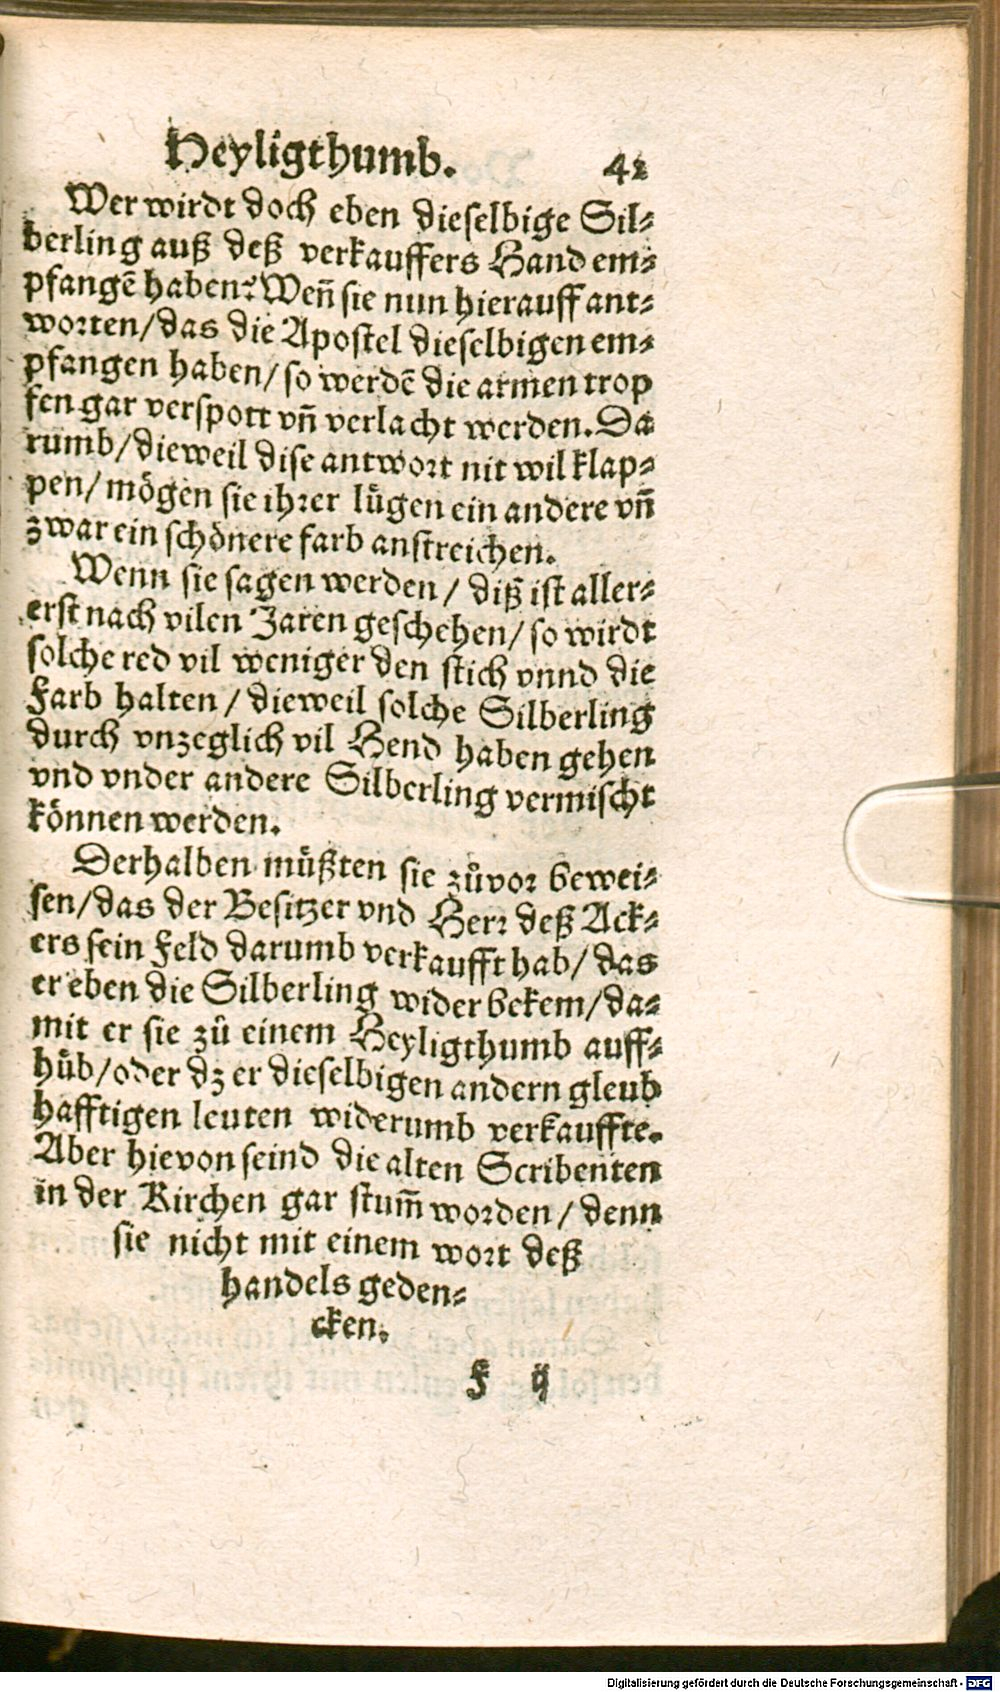 Heyligthumb. 42
Wer wirdt doch eben dieselbige Sil⸗
berling auß deß verkauffers Hand em⸗
pfangẽ haben? Weñ sie nun hierauff ant⸗
worten/das die Apostel dieselbigen em⸗
pfangen haben/ so werdẽ die armen trop
fen gar verspott vñ verlacht werden. Da
rumb/dieweil dise antwort nit wil klap⸗
pen/ mögen sie ihrer lügen ein andere vñ
zwar ein schönere farb anstreichen.
Wenn sie sagen werden / diß ist aller⸗
erst nach vilen Jaren geschehen/ so wirdt
solche red vil weniger den stich vnnd die
Farb halten / dieweil solche Silberling
durch vnzeglich vil Hend haben gehen
vnd vnder andere Silberling vermischt
können werden.
Derhalben müßten sie zůvor bewei⸗
sen/das der Besitzer vnd Herr deß Ack⸗
ers sein Feld darumb verkaufft hab/ das
er eben die Silberling wider bekem/da⸗
mit er sie zů einem Heyligthumb auff⸗
hůb/oder dz er dieselbigen andern gleub
hafftigen leuten widerumb verkauffte.
Aber hievon seind die alten Scribenten
in der Kirchen gar stum̃ worden / denn
sie nicht mit einem wort deß
handels geden⸗
cken.
F ij
Digitalisierung gefördert durch die Deutsche Forschungsgemeinschaft - DFG